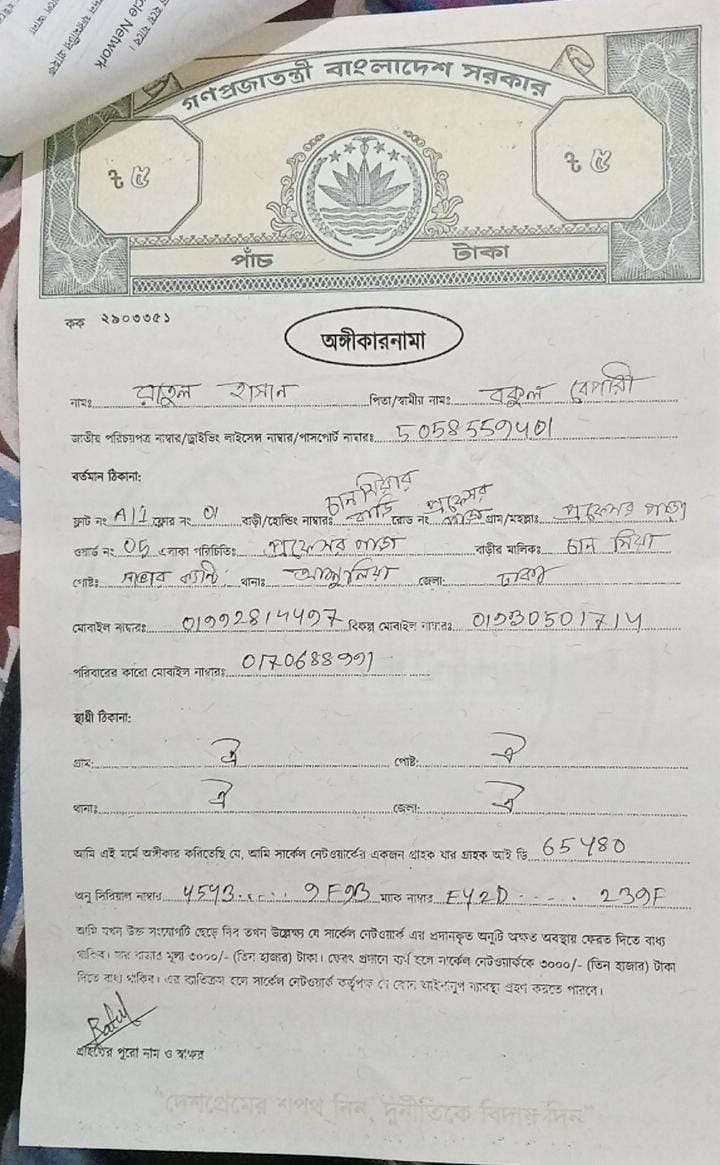 Circle Network
গণপ্রজাতন্ত্রী বাংলাদেশ সরকার
৳ ৫ ৳ ৫
পাঁচ টাকা
কক ২৯০৩৩৫১
অঙ্গীকারনামা
নামঃ রাতুল হাসান পিতা/স্বামীর নামঃ বকুল বেপারী
জাতীয় পরিচয়পত্র নাম্বার/ড্রাইভিং লাইসেন্স নাম্বার/পাসপোর্ট নাম্বারঃ 5058559401
বর্তমান ঠিকানা:
ফ্লাট নং A/1 ফ্লোর নং 01 বাড়ী/হোল্ডিং নাম্বারঃ চান মিয়ার বাড়ি রোড নং প্রফেসর গ্রাম/মহল্লাঃ প্রফেসর পাড়া
ওয়ার্ড নং 05 এলাকা পরিচিতিঃ প্রফেসর পাড়া বাড়ীর মালিকঃ চান মিয়া
পোষ্টঃ সাভার ক্যান্ট: থানাঃ আশুলিয়া জেলা: ঢাকা
মোবাইল নাম্বারঃ বিকল্প মোবাইল নাম্বারঃ
পরিবারের কারো মোবাইল নাম্বারঃ
স্থায়ী ঠিকানা:
গ্রাম: ঐ পোষ্ট: ঐ
থানাঃ ঐ জেলা: ঐ
আমি এই মর্মে অঙ্গীকার করিতেছি যে, আমি সার্কেল নেটওয়ার্কের একজন গ্রাহক যার গ্রাহক আই ডি 65480
অনু সিরিয়াল নাম্বার ম্যাক নাম্বার
আমি যখন উক্ত সংযোগটি ছেড়ে দিব তখন উল্লেক্ষ্য যে সার্কেল নেটওয়ার্ক এর প্রদানকৃত অনুটি অক্ষত অবস্থায় ফেরত দিতে বাধ্য
থাকিব। যার বাজার মূল্য ৩০০০/- (তিন হাজার) টাকা। ফেরৎ প্রদানে ব্যর্থ হলে সার্কেল নেটওয়ার্ককে ৩০০০/- (তিন হাজার) টাকা
দিতে বাধ্য থাকিব। এর ব্যতিক্রম হলে সার্কেল নেটওয়ার্ক কর্তৃপক্ষ যে কোন আইনানুগ ব্যবস্থা গ্রহণ করতে পারবে।
Ratul
গ্রাহকের পুরো নাম ও স্বাক্ষর
"দেশপ্রেমের শপথ নিন, দুর্নীতিকে বিদায় দিন"